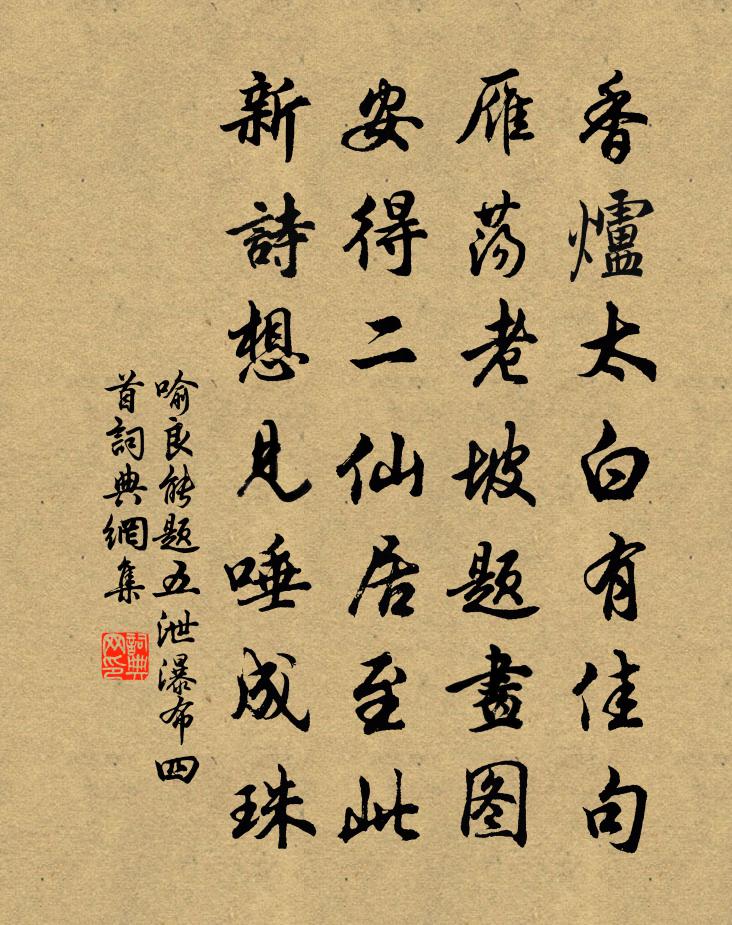 香爐太白有佳句
雁荡老坡题畫图
安得二仙居至此
新詩想見唾成珠
喻良能题五泄瀑布四
首詞典網集
詞典网印